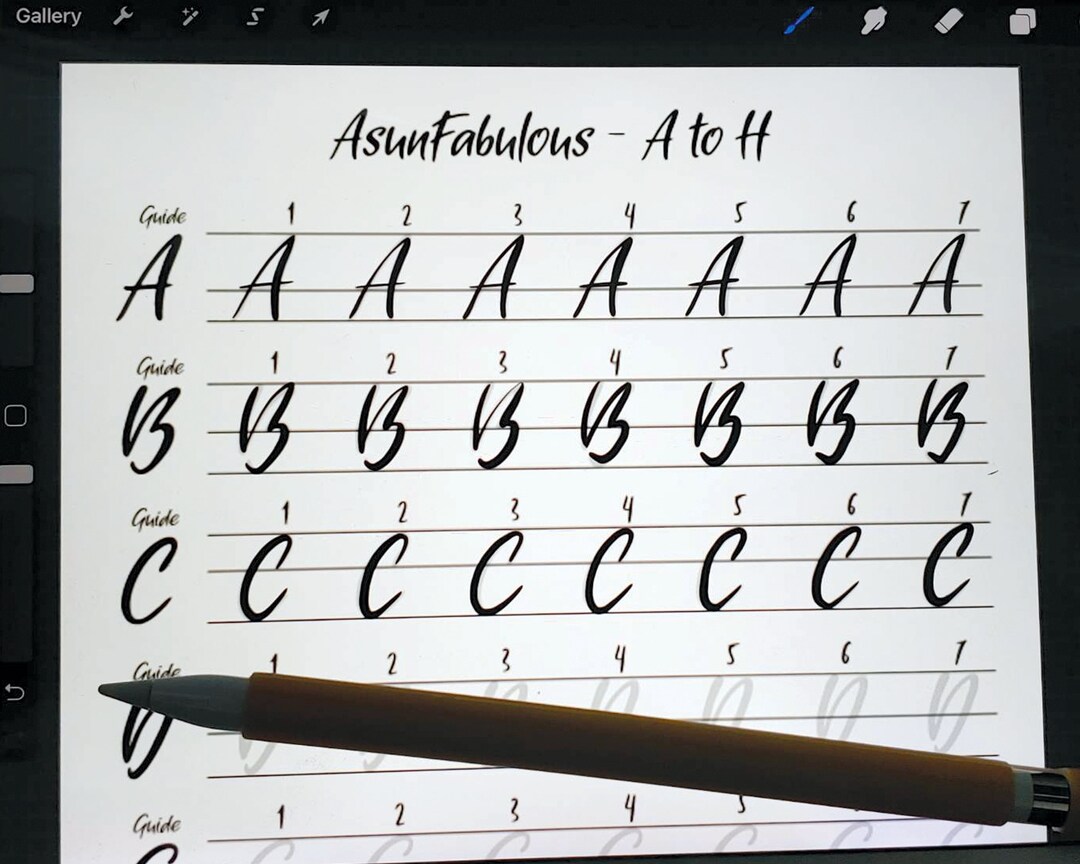 Gallery
AsunFabulous - A to H
Guide 1 2 3 4 5 6 7
A A A A A A A A
Guide 1 2 3 4 5 6 7
B B B B B B B B
Guide 1 2 3 4 5 6 7
C C C C C C C C
Guide 1 2 3 4 5 6 7
D D D D D D D D
Guide 1 2 3 4 5